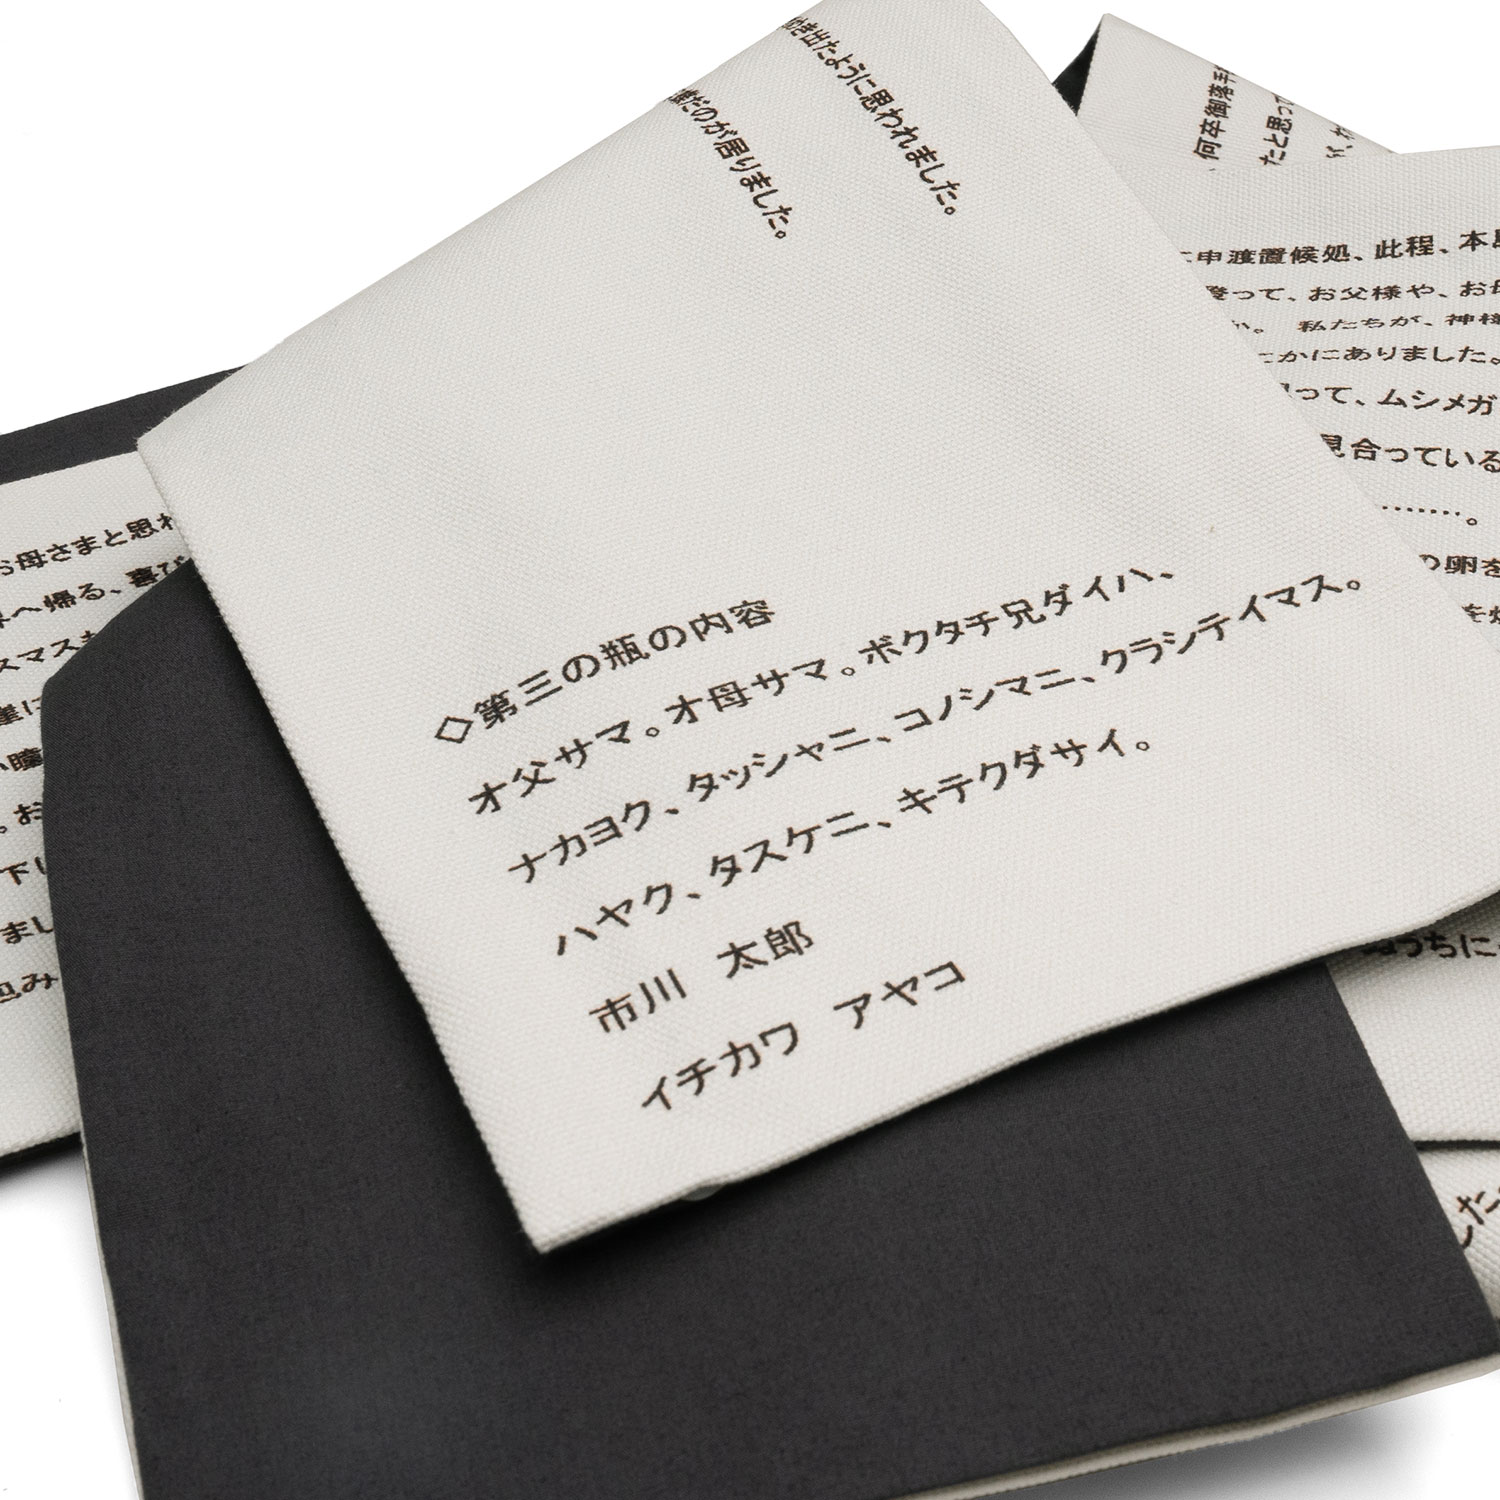 き出たように思われました。
だのが居りました。
◇第三の瓶の内容
オ父サマ。オ母サマ。ボクタチ兄ダイハ、
ナカヨク、タッシャニ、コノシマニ、クラシテイマス。
ハヤク、タスケニ、キテクダサイ。
市川　太郎
イチカワ　アヤコ
何卒御落手
たと思って
申渡置候処、此程、本
って、お父様や、お
か。　私たちが、神様
かにありました。
って、ムシメガ
見合っている
………。
の卵を
お母さまと思
へ帰る、喜び
スマス
崖に
瞳
。お
下し
まし
包み
うちに
した